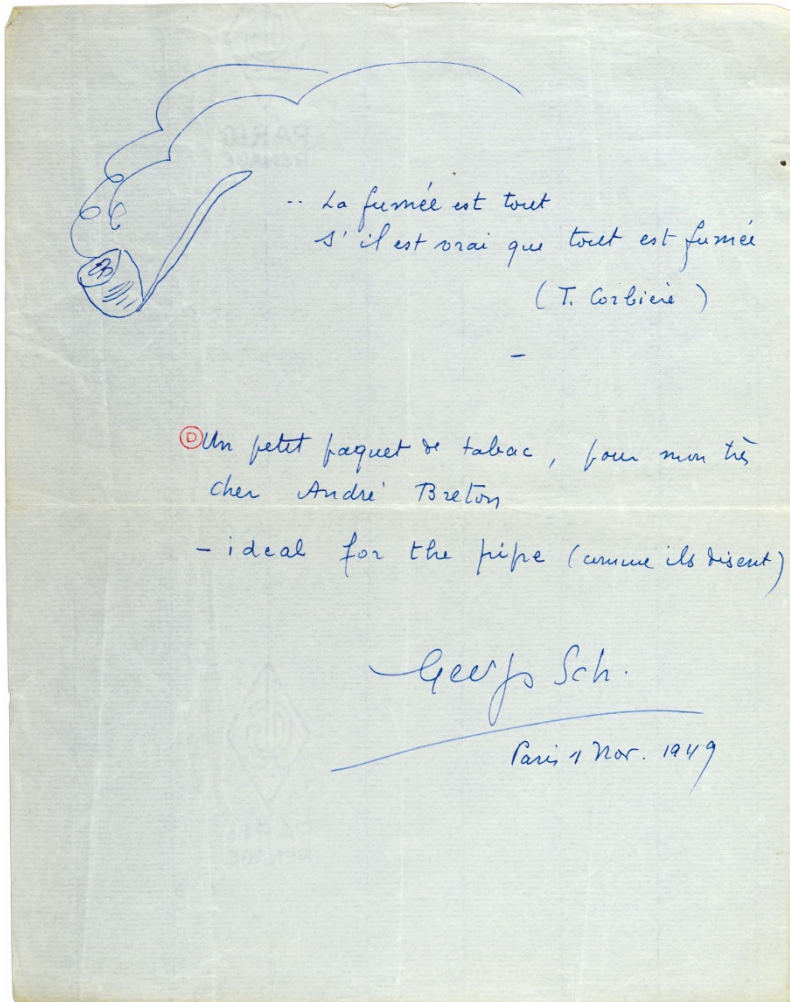 .. La fumée est tout
s'il est vrai que tout est fumée
(T. Corbière)
–
Ⓓ Un petit paquet de tabac, pour mon très
cher André Breton
– ideal for the pipe (comme ils disent)
Sch.
Paris 1 Nov. 1949
PARIS
RENAGE
PARIS
RENAGE